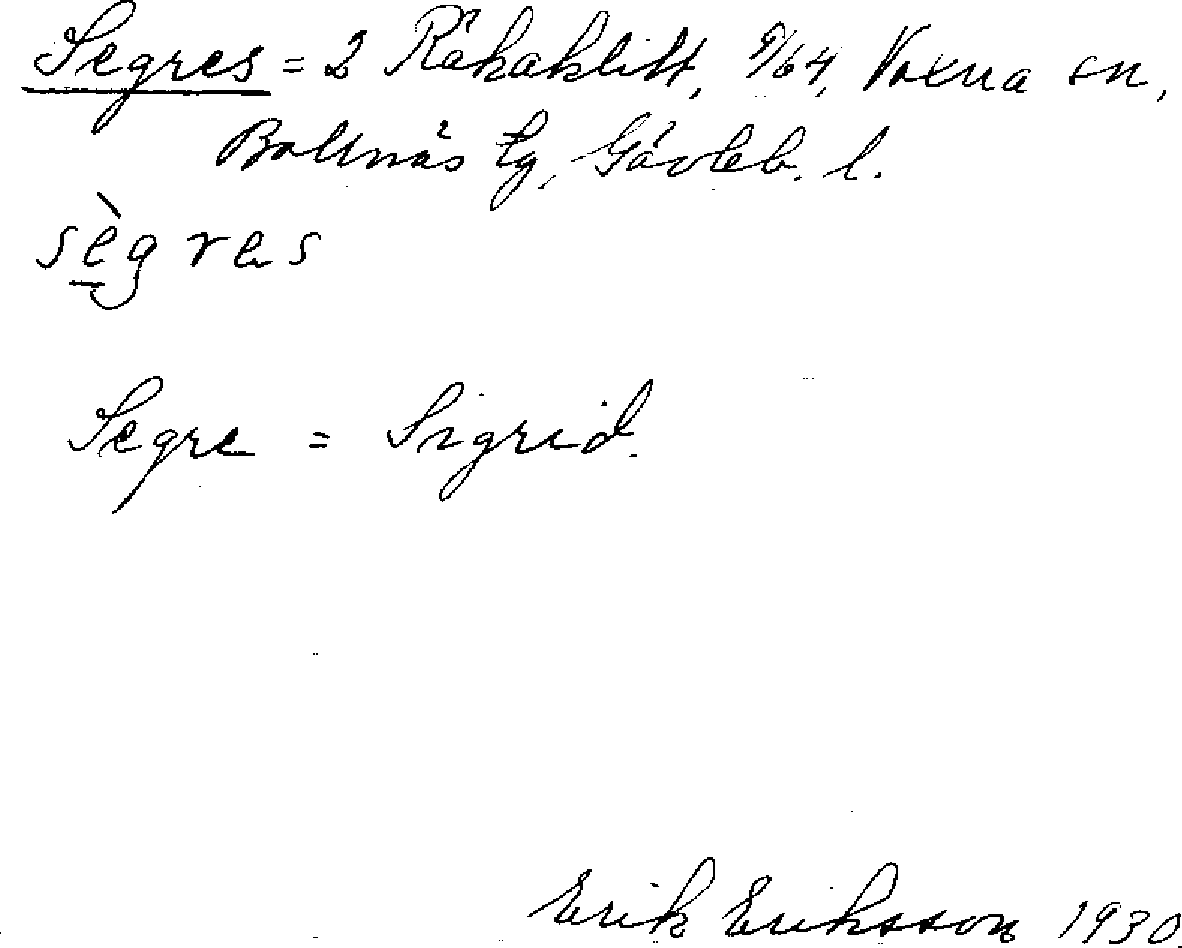 Segres = 2 Råkaklitt, 9/64, Voxna sn,
Bollnäs tg, Gävleb. l.
sègres
Segre = Sigrid.
Erik Eriksson 1930.